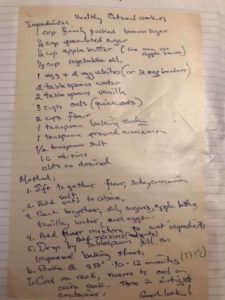 Ingredients: Healthy Oatmeal cookies
1 cup firmly packed brown sugar
½ cup granulated sugar
½ cup apple butter (you can use apple sauce)
⅓ cup vegetable oil,
1 egg + 2 egg whites (or
2 tablespoons water
2 tablespoons vanilla
3 cups oats (quick oats)
2 cups flour
1 teaspoon baking soda
1 teaspoon ground cinnamon
½ teaspoon salt
1 c raisins
nuts as desired
Method:
1. Sift together flour, soda, cinnamon
salt.
2. Add oats to above,
3. Beat together, oil, sugars, apple butter
vanilla, water, and eggs.
4. Add flour mixture to wet ingredients
Add raisins
5. Drop by tablespoon full on
ungreased baking sheet,
6. Bake @ 350° 10-12 minutes, (177°C)
7. Cool on rack, remove to cool on
wire rack. Store in airtight
container.
Good luck!